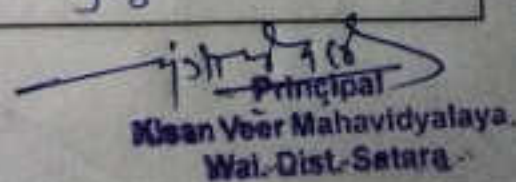 Principal
Kisan Veer Mahavidyalaya,
Wai.-Dist.-Satara.